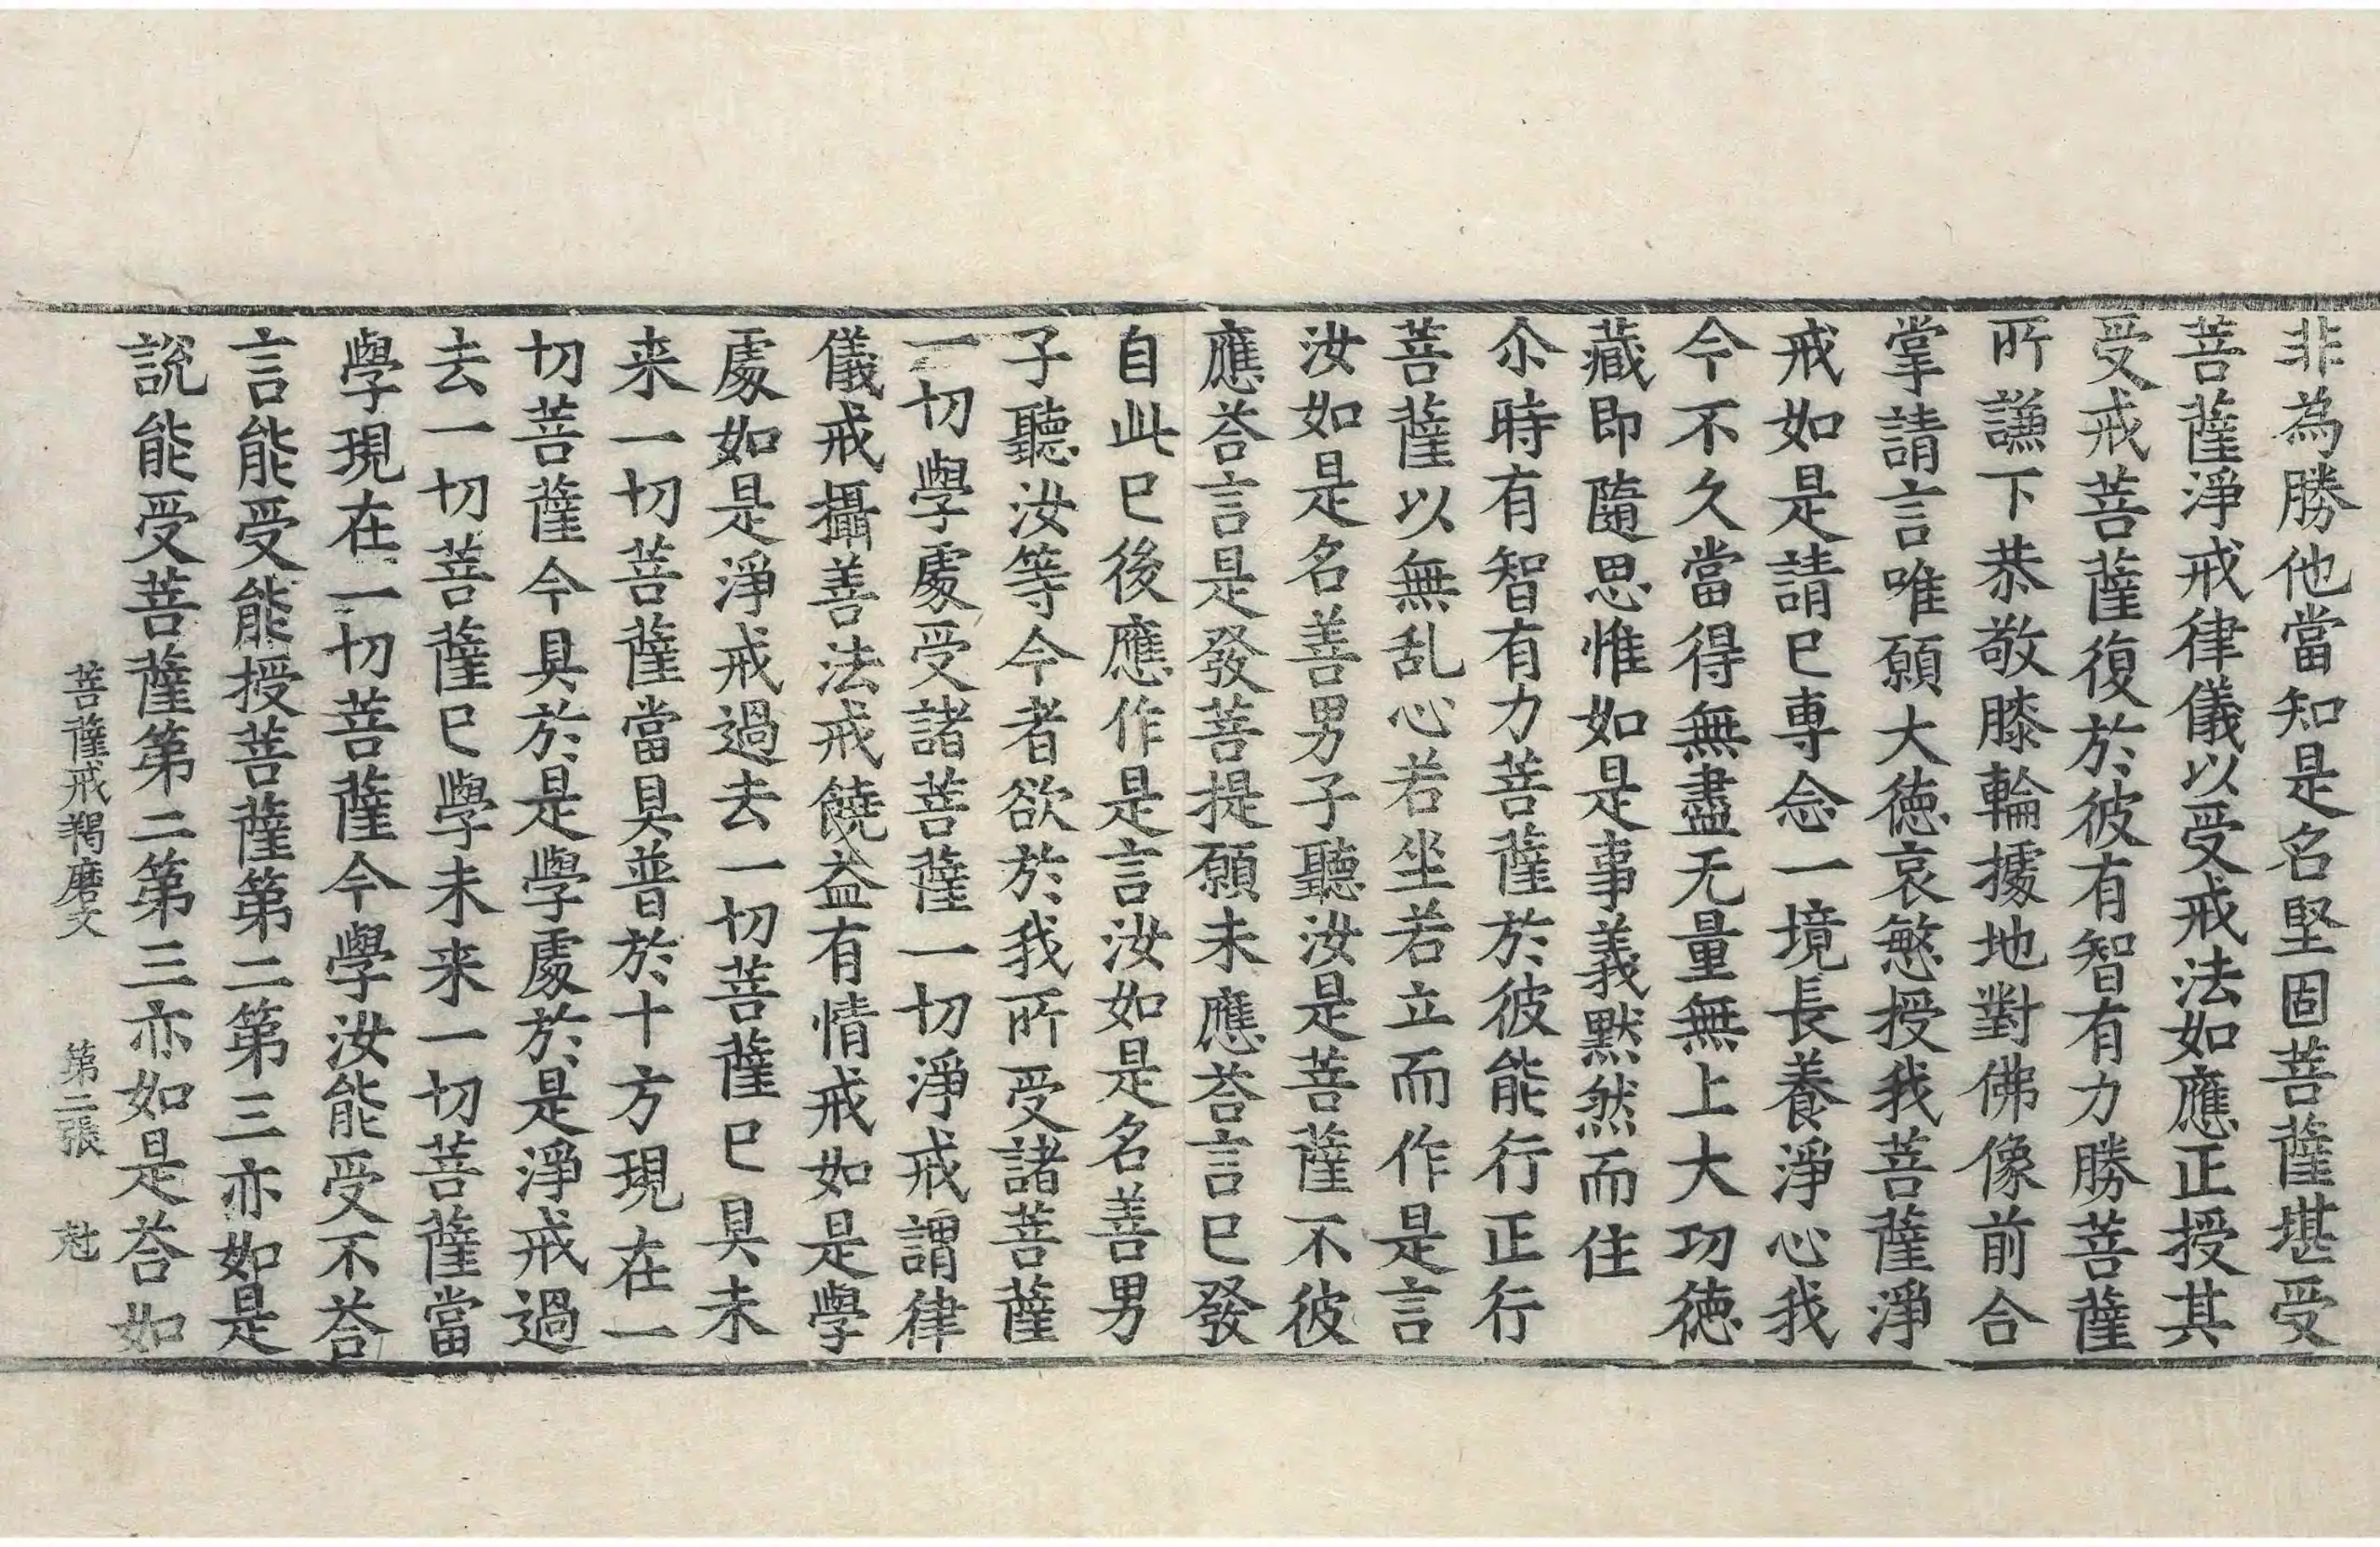 非為勝他當知是名堅固菩薩堪受
菩薩淨戒律儀以受戒法如應正授其
受戒菩薩復於彼有智有力勝菩薩
所謙下恭敬膝輪據地對佛像前合
掌請言唯願大徳哀慜授我菩薩淨
戒如是請巳専念一境長養淨心我
今不久當得無盡无量無上大功徳
藏即隨思惟如是事義默然而住
尒時有智有力菩薩於彼能行正行
菩薩以無乱心若坐若立而作是言
汝如是名善男子聽汝是菩薩不彼
應荅言是發菩提願未應荅言巳發
自此巳後應作是言汝如是名善男
子聽汝等今者欲於我所受諸菩薩
一切學處受諸菩薩一切淨戒謂律
儀戒攝善法戒饒益有情戒如是學
處如是淨戒過去一切菩薩巳具未
来一切菩薩當具普於十方現在一
切菩薩今具於是學處於是淨戒過
去一切菩薩巳學未来一切菩薩當
學現在一切菩薩今學汝能受不荅
言能受能授菩薩第二第三亦如是
說能受菩薩第二第三亦如是荅如
菩薩戒羯磨文 第二張 尅